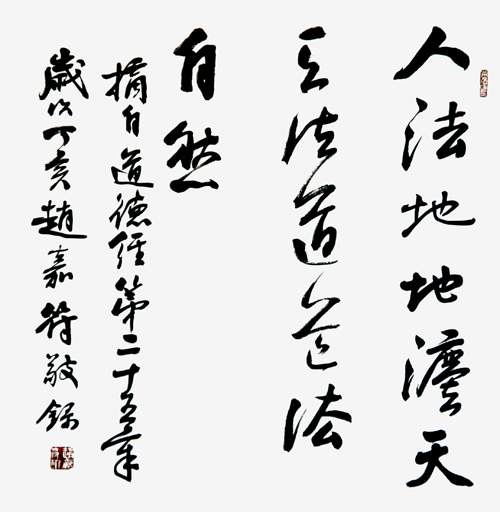 人法地地灋天
天法道道法
自然
摘自道德经第二十五章
歲次丁亥趙嘉符敬錄